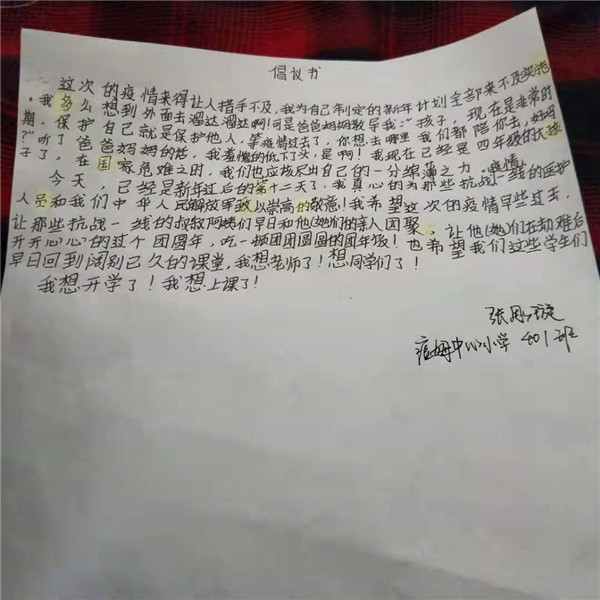 倡议书
这次的疫情来得让人措手不及,我为自己制定的新年计划全部来不及实施
我多么想到外面去溜达溜达啊!可是爸爸妈妈教导我:"孩子,现在是非常时
期,保护自己就是保护他人,等疫情过去了,你想去哪里我们都陪你去,好吗
?"听了爸爸妈妈的话,我羞愧的低下了头,是啊!我现在已经是四年级的大孩
子了,在国家危难之时,我们也应该尽出自己的一分绵薄之力。
今天,已经是新年过后的第十二天了,我真心的为那些抗战疫情一线的医护
人员和我们中华人民解放军致以崇高的敬意!我希望这次的疫情早些过去,
让那些抗战一线的叔叔阿姨们早日和他(她)们的亲人团聚,让他(她)们在劫难后
开开心心的过个团圆年,吃一顿团团圆圆的团年饭!也希望我们这些学生们
早日回到阔别已久的课堂,我想老师了!想同学们了!
我想开学了!我想上课了!
张
中心小学401班